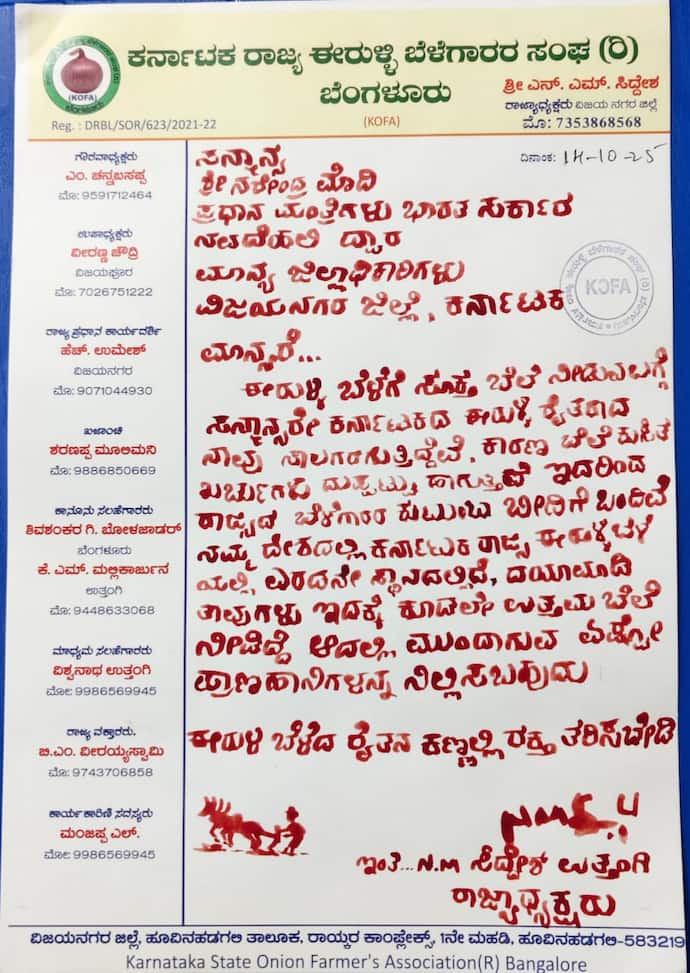 ಕರ್ನಾಟಕ ರಾಜ್ಯ ಈರುಳ್ಳಿ ಬೆಳೆಗಾರರ ಸಂಘ (ರಿ)
ಬೆಂಗಳೂರು
(KOFA)
ಶ್ರೀ ಎನ್. ಎಮ್. ಸಿದ್ದೇಶ
ರಾಜ್ಯಾಧ್ಯಕ್ಷರು ವಿಜಯ ನಗರ ಜಿಲ್ಲೆ
ಮೊ: 7353868568
(KOFA)
ಬೆಂಗಳೂರು
Reg. : DRBL/SOR/623/2021-22
ಗೌರವಾಧ್ಯಕ್ಷರು
ಎಂ. ಚನ್ನಬಸಪ್ಪ
ಮೊ: 9591712464
ಉಪಾಧ್ಯಕ್ಷರು
ವೀರಣ್ಣ ಚೌದ್ರಿ
ವಿಜಯಪೂರ
ಮೊ: 7026751222
ರಾಜ್ಯ ಪ್ರಧಾನ ಕಾರ್ಯದರ್ಶಿ
ಹೆಚ್. ಉಮೇಶ್
ವಿಜಯನಗರ
ಮೊ: 9071044930
ಖಜಾಂಚಿ
ಶರಣಪ್ಪ ಮೂಲಿಮನಿ
ಮೊ: 9886850669
ಕಾನೂನು ಸಲಹೆಗಾರರು
ಶಿವಶಂಕರ ಗಿ. ಬೋಳಜಾಡರ್
ಬೆಂಗಳೂರು
ಕೆ. ಎಮ್. ಮಲ್ಲಿಕಾರ್ಜುನ
ಉತ್ತಂಗಿ
ಮೊ: 9448633068
ಮಾಧ್ಯಮ ಸಲಹೆಗಾರರು
ವಿಶ್ವನಾಥ ಉತ್ತಂಗಿ
ಮೋ: 9986569945
ರಾಜ್ಯ ವಕ್ತಾರರು.
ಬಿ.ಎಂ. ವೀರಯ್ಯಸ್ವಾಮಿ
ಮೊ: 9743706858
ಕಾರ್ಯಕಾರಿಣಿ ಸದಸ್ಯರು
ಮಂಜಪ್ಪ ಎಲ್.
ಮೋ: 9986569945
ದಿನಾಂಕ: 14-10-25
ಸನ್ಮಾನ್ಯ
ಶ್ರೀ ನರೇಂದ್ರ ಮೋದಿ
ಪ್ರಧಾನ ಮಂತ್ರಿಗಳು ಭಾರತ ಸರ್ಕಾರ
ನವದೆಹಲಿ ದ್ವಾರ
ಮಾನ್ಯ ಜಿಲ್ಲಾಧಿಕಾರಿಗಳು
ವಿಜಯನಗರ ಜಿಲ್ಲೆ, ಕರ್ನಾಟಕ
KOFA
ಮಾನ್ಯರೆ...
ಈರುಳ್ಳಿ ಬೆಳೆಗೆ ಸೂಕ್ತ ಬೆಲೆ ನೀಡುವ ಬಗ್ಗೆ
ಸನ್ಮಾನ್ಯರೇ ಕರ್ನಾಟಕದ ಈರುಳ್ಳಿ ರೈತರಾದ
ನಾವು ಸಾಲಗಾರರಾಗುತ್ತಿದ್ದೇವೆ, ಕಾರಣ ಬೆಲೆ ಕುಸಿತ
ಖರ್ಚುಗಳು ದುಪ್ಪಟ್ಟು ಹಾಗುತ್ತಿವೆ ಇದರಿಂದ
ರಾಜ್ಯದ ಬೆಳೆಗಾರರ ಕುಟುಂಬ ಬೀದಿಗೆ ಬಂದಿವೆ
ನಮ್ಮ ದೇಶದಲ್ಲಿ ಕರ್ನಾಟಕ ರಾಜ್ಯ ಈರುಳ್ಳಿ ಬೆಳೆ
ಯಲ್ಲಿ ಎರಡನೇ ಸ್ಥಾನದಲ್ಲಿದೆ, ದಯಮಾಡಿ
ತಾವುಗಳು ಇದಕ್ಕೆ ಕೂಡಲೇ ಉತ್ತಮ ಬೆಲೆ
ನೀಡಿದ್ದೆ ಆದಲ್ಲಿ ಮುಂದಾಗುವ ಎಷ್ಟೋ
ಪ್ರಾಣಹಾನಿಗಳನ್ನ ನಿಲ್ಲಿಸಬಹುದು
ಈರುಳ್ಳಿ ಬೆಳೆದ ರೈತನ ಕಣ್ಣಲ್ಲಿ ರಕ್ತ ತರಿಸಬೇಡಿ
ಇಂತಿ... N.M ಸಿದ್ದೇಶ್ ಉತ್ತಂಗಿ
ರಾಜ್ಯಾಧ್ಯಕ್ಷರು
ವಿಜಯನಗರ ಜಿಲ್ಲೆ, ಹೂವಿನಹಡಗಲಿ ತಾಲೂಕ, ರಾಯ್ಕರ ಕಾಂಪ್ಲೇಕ್ಸ್, 1ನೇ ಮಹಡಿ, ಹೂವಿನಹಡಗಲಿ-583219
Karnataka State Onion Farmer's Association(R) Bangalore